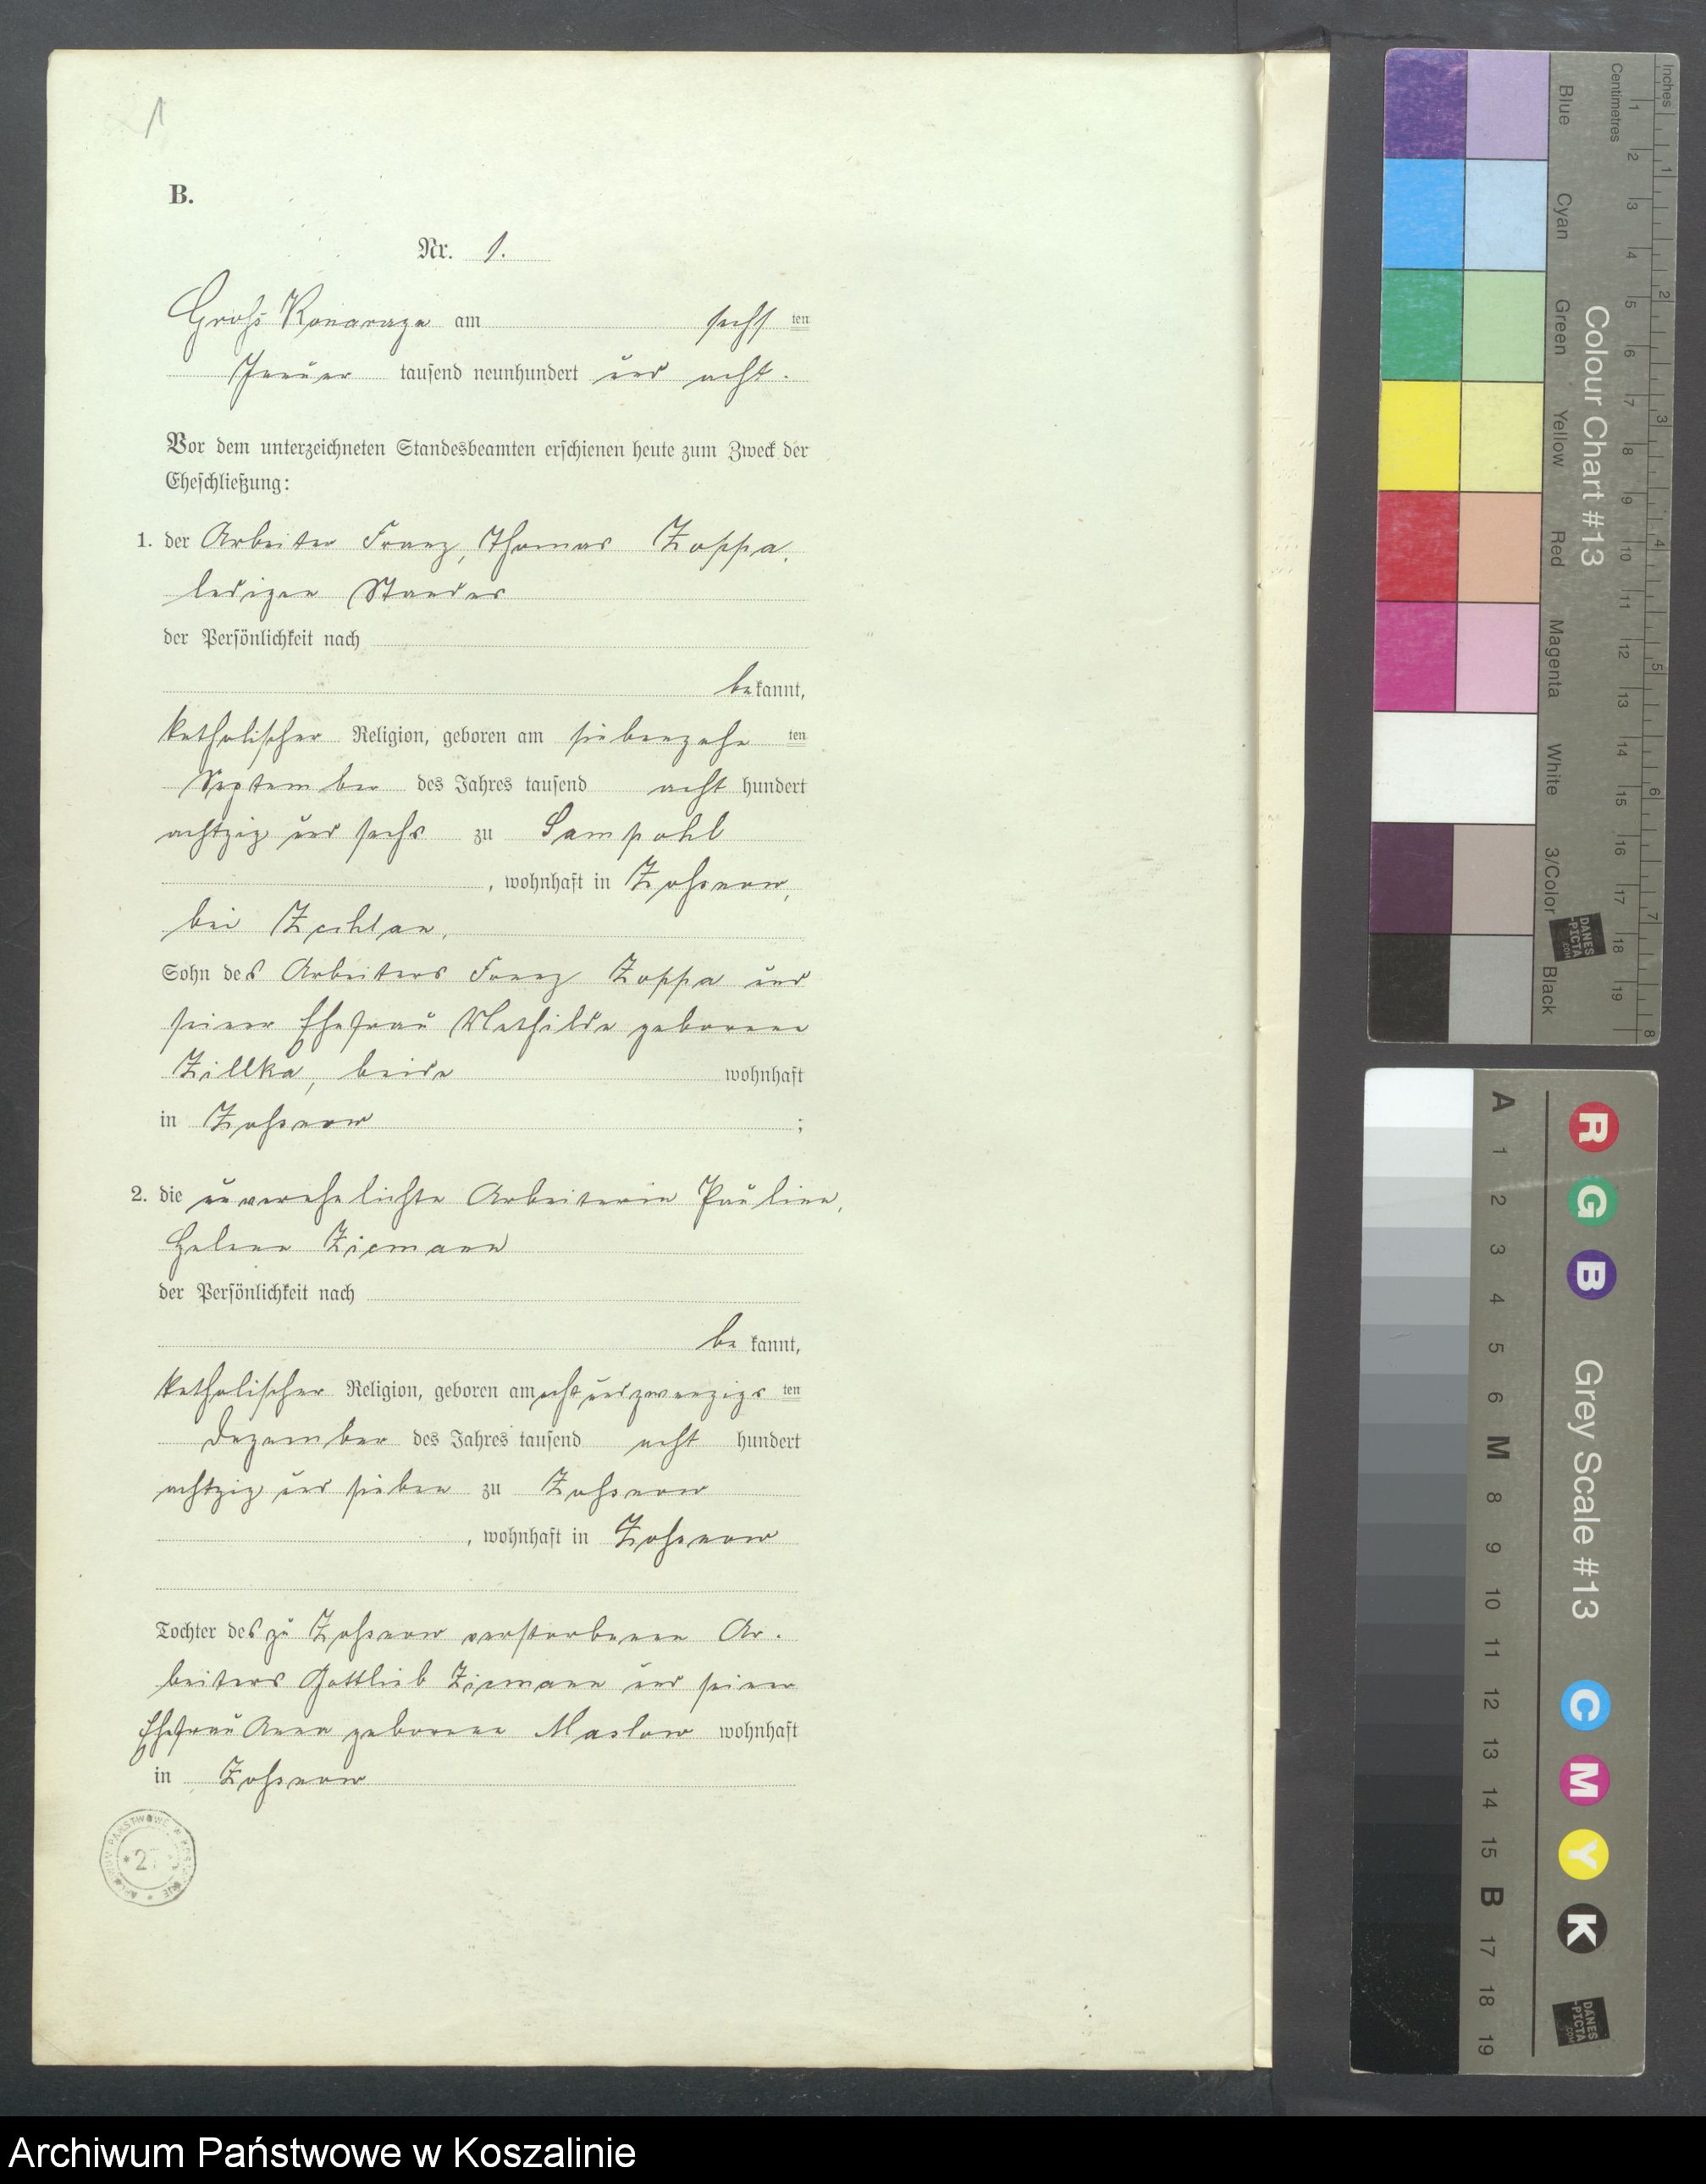 1
B.
Nr. 1.
Groß Konarczyn am sechs ten
Januar tausend neunhundert und acht.
Vor dem unterzeichneten Standesbeamten erschienen heute zum Zweck der
Eheschließung:
1. der Arbeiter Franz, Thomas Zoppa,
ledigen Standes
der Persönlichkeit nach
bekannt,
katholischer Religion, geboren am siebenzehn ten
September des Jahres tausend acht hundert
achtzig und sechs zu Sampohl
, wohnhaft in Zossnow,
bei Zechlau,
Sohn des Arbeiters Franz Zoppa und
seiner Ehefrau Mathilde geborene
Zillka, beide wohnhaft
in Zossnow ;
2. die unverehelichte Arbeiterin Pauline,
Helene Ziemann
der Persönlichkeit nach
be kannt,
katholischer Religion, geboren am achtundzwanzigs ten
Dezember des Jahres tausend acht hundert
achtzig und sieben zu Zossnow
, wohnhaft in Zossnow
Tochter des zu Zossnow verstorbenen Ar-
beiters Gottlieb Ziemann und seiner
Ehefrau Anna geborene Maslow wohnhaft
in Zossnow
ARCHIWUM PAŃSTWOWE W KOSZALINIE
Archiwum Państwowe w Koszalinie
Inches
Centimetres
1 2 3 4 5 6 7 8
1 2 3 4 5 6 7 8 9 10 11 12 13 14 15 16 17 18 19
Colour Chart #13
Blue Cyan Green Yellow Red Magenta White 3/Color Black
DANES
-PICTA
.COM
R G B
Grey Scale #13
C M Y K
A 1 2 3 4 5 6 M 8 9 10 11 12 13 14 15 B 17 18 19
DANES
-PICTA
.COM